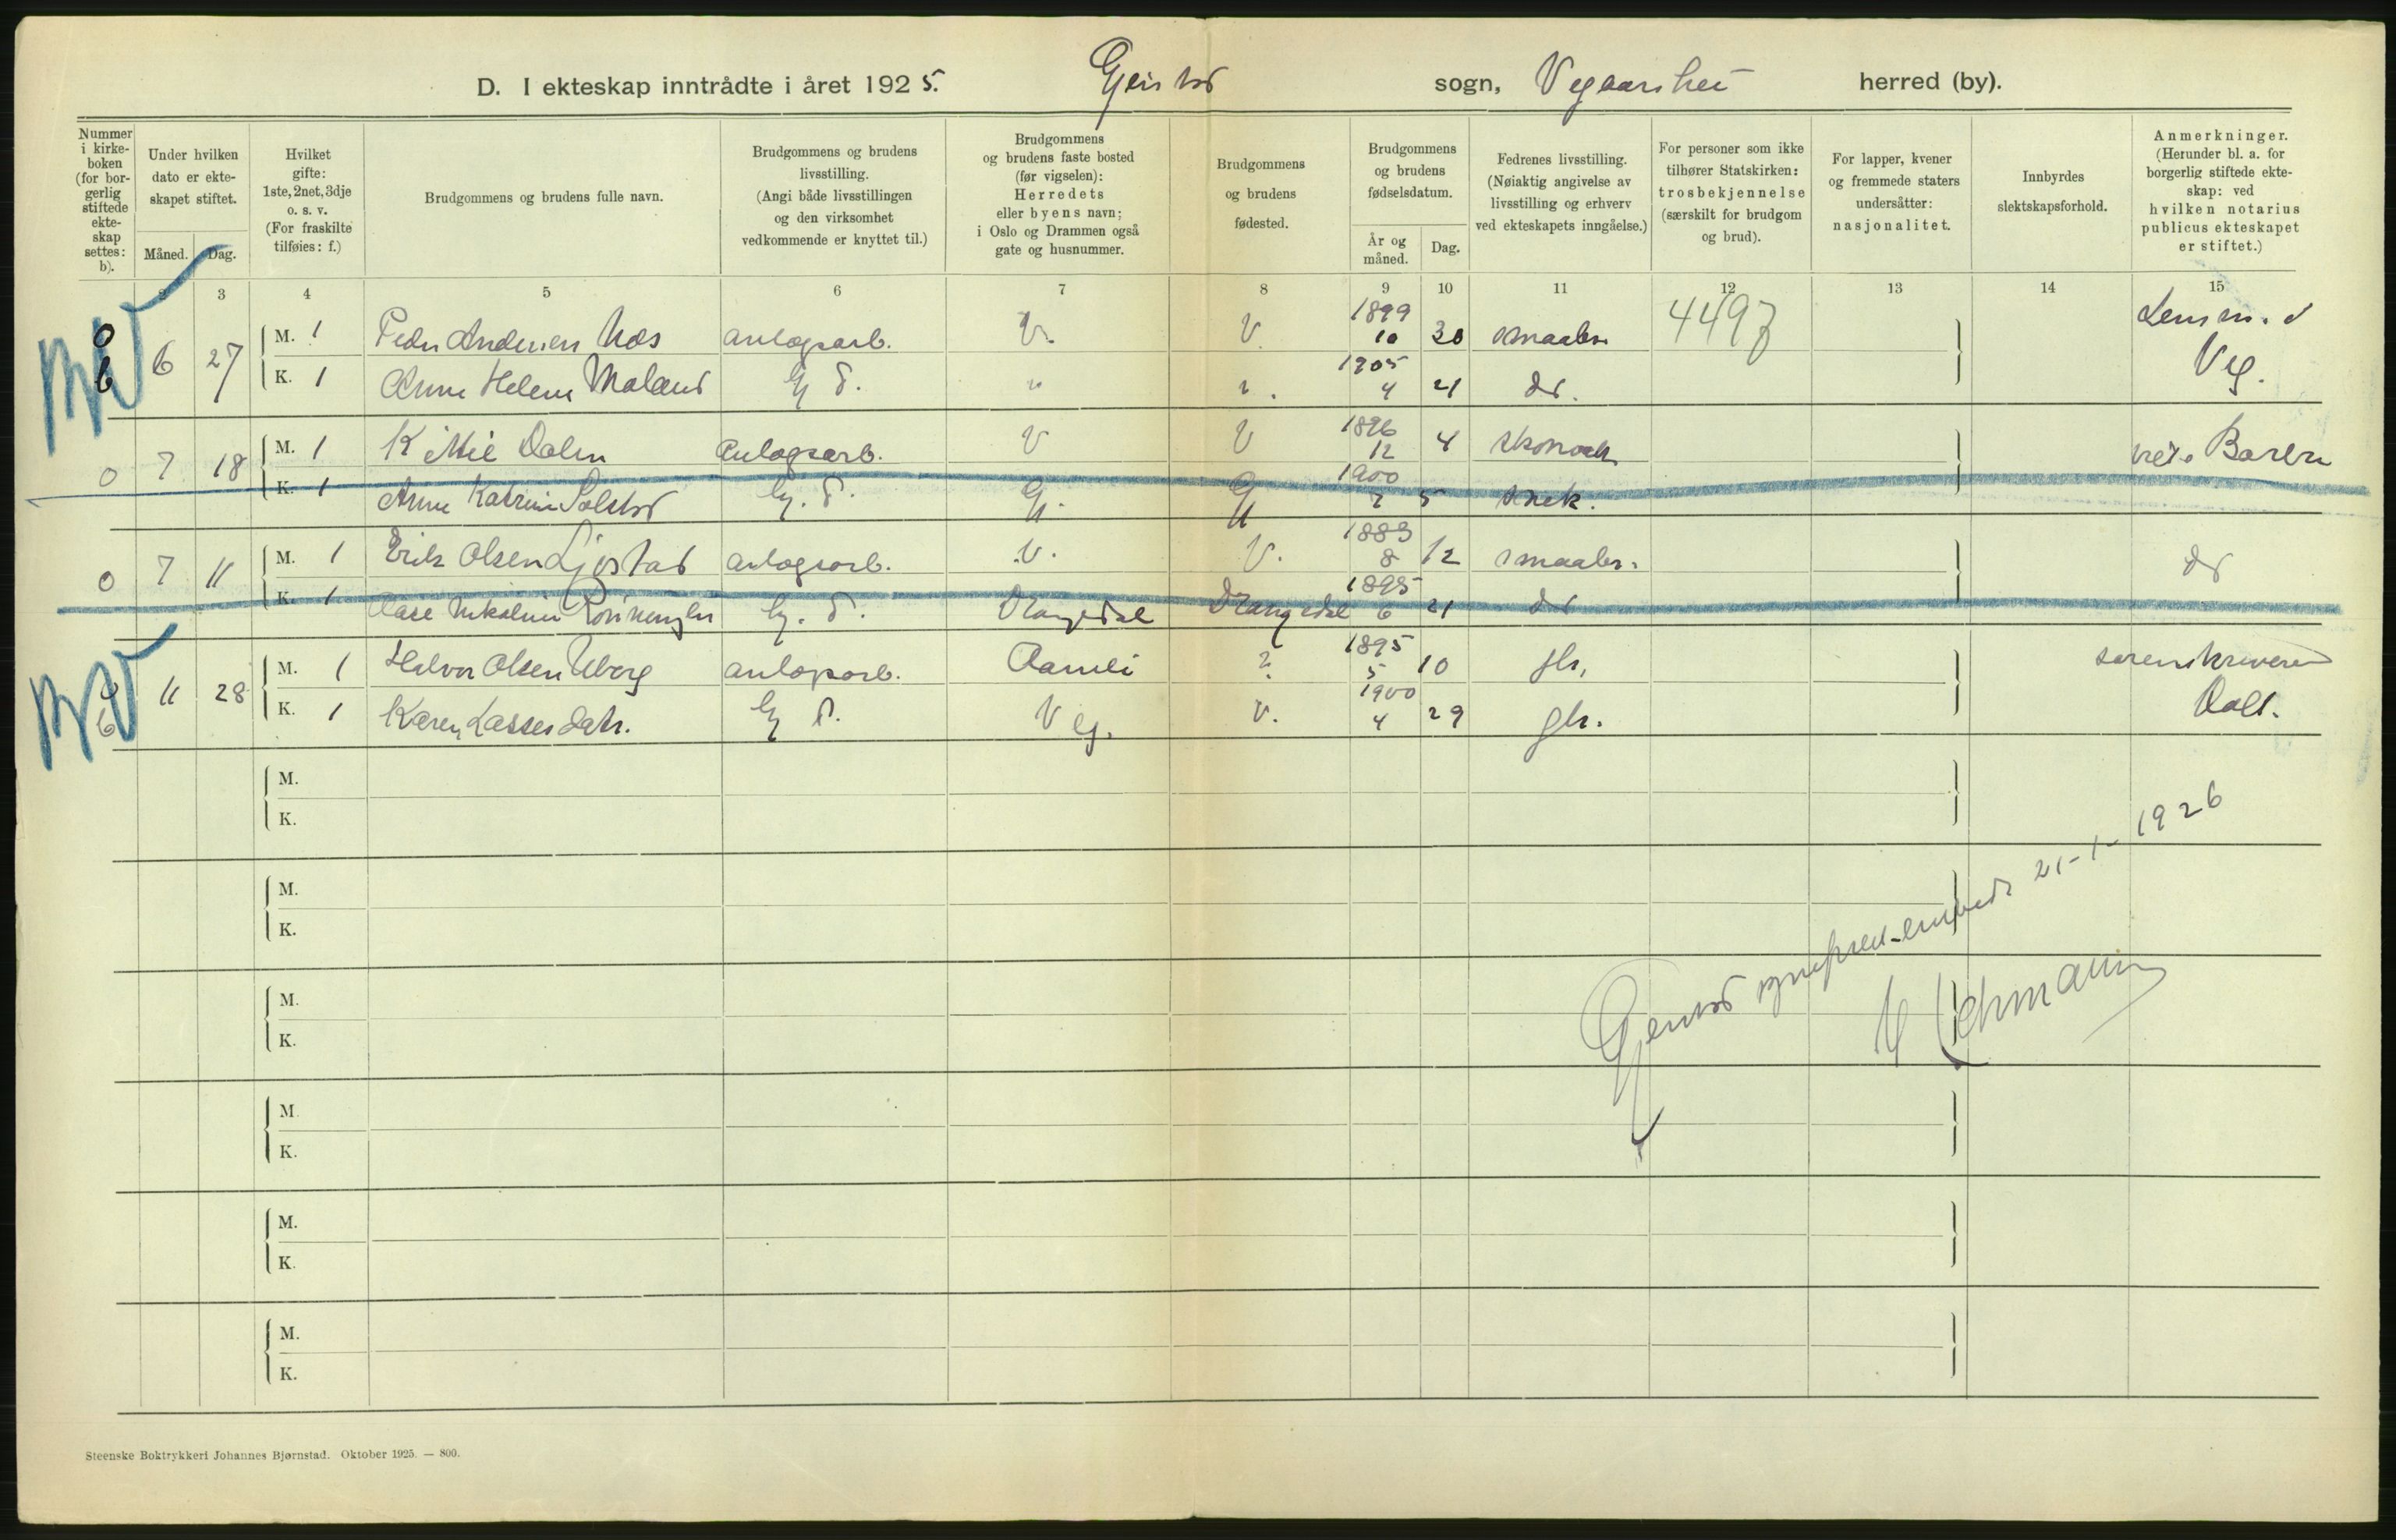 D. I ekteskap inntrådte i året 1925. sogn, Vegaarshei herred (by).
Nummer i kirke- boken (for bor- gerlig stiftede ekte- skap settes: b).
Under hvilken dato er ekte- skapet stiftet.
Måned. Dag.
Hvilket gifte: 1ste, 2net, 3dje o. s. v. (For fraskilte tilføies: f.)
Brudgommens og brudens fulle navn.
Brudgommens og brudens livsstilling. (Angi både livsstillingen og den virksomhet vedkommende er knyttet til.)
Brudgommens og brudens faste bosted (før vigselen): Herredets eller byens navn; i Oslo og Drammen også gate og husnummer.
Brudgommens og brudens fødested.
Brudgommens og brudens fødselsdatum.
År og måned. Dag.
Fedrenes livsstilling. (Nøiaktig angivelse av livsstilling og erhverv ved ekteskapets inngåelse.)
For personer som ikke tilhører Statskirken: trosbekjennelse (særskilt for brudgom og brud).
For lapper, kvener og fremmede staters undersåtter: nasjonalitet.
Innbyrdes slektskapsforhold.
Anmerkninger. (Herunder bl. a. for borgerlig stiftede ekte- skap: ved hvilken notarius publicus ekteskapet er stiftet.)
2 3 4 5 6 7 8 9 10 11 12 13 14 15
0 b 6 27 M. 1 Peder Andersen anlegsarb. V. V. 1899 10 30 smaabr. 4497 Lensm. i
K. 1 Anne Helene Moland G d. " " 1905 4 21 do. Veg.
0 7 18 M. 1 Dalen anlegsarb. V V 1896 12 4
K. 1 Anne Katrine Solstad G. d. G. G 1900 2 5 snek.
0 7 11 M. 1 Erik Olsen Ljøstad anlegsarb. V. V. 1883 8 12 smaabr. do
K. 1 Aase Nikoline G. d. Drangedal Drangedal 1895 6 21 do
0 b 11 28 M. 1 Halvor Olsen Uberg anlegsarb. Aamli ? 1895 5 10 gbr. sorenskriveren
K. 1 Karen Lassesdatr. G d. Veg. V. 1900 4 29 gbr.
M.
K.
M.
K.
M.
K.
M.
K.
M.
K.
M.
K.
21-1-1926
Steenske Boktrykkeri Johannes Bjørnstad. Oktober 1925. — 800.